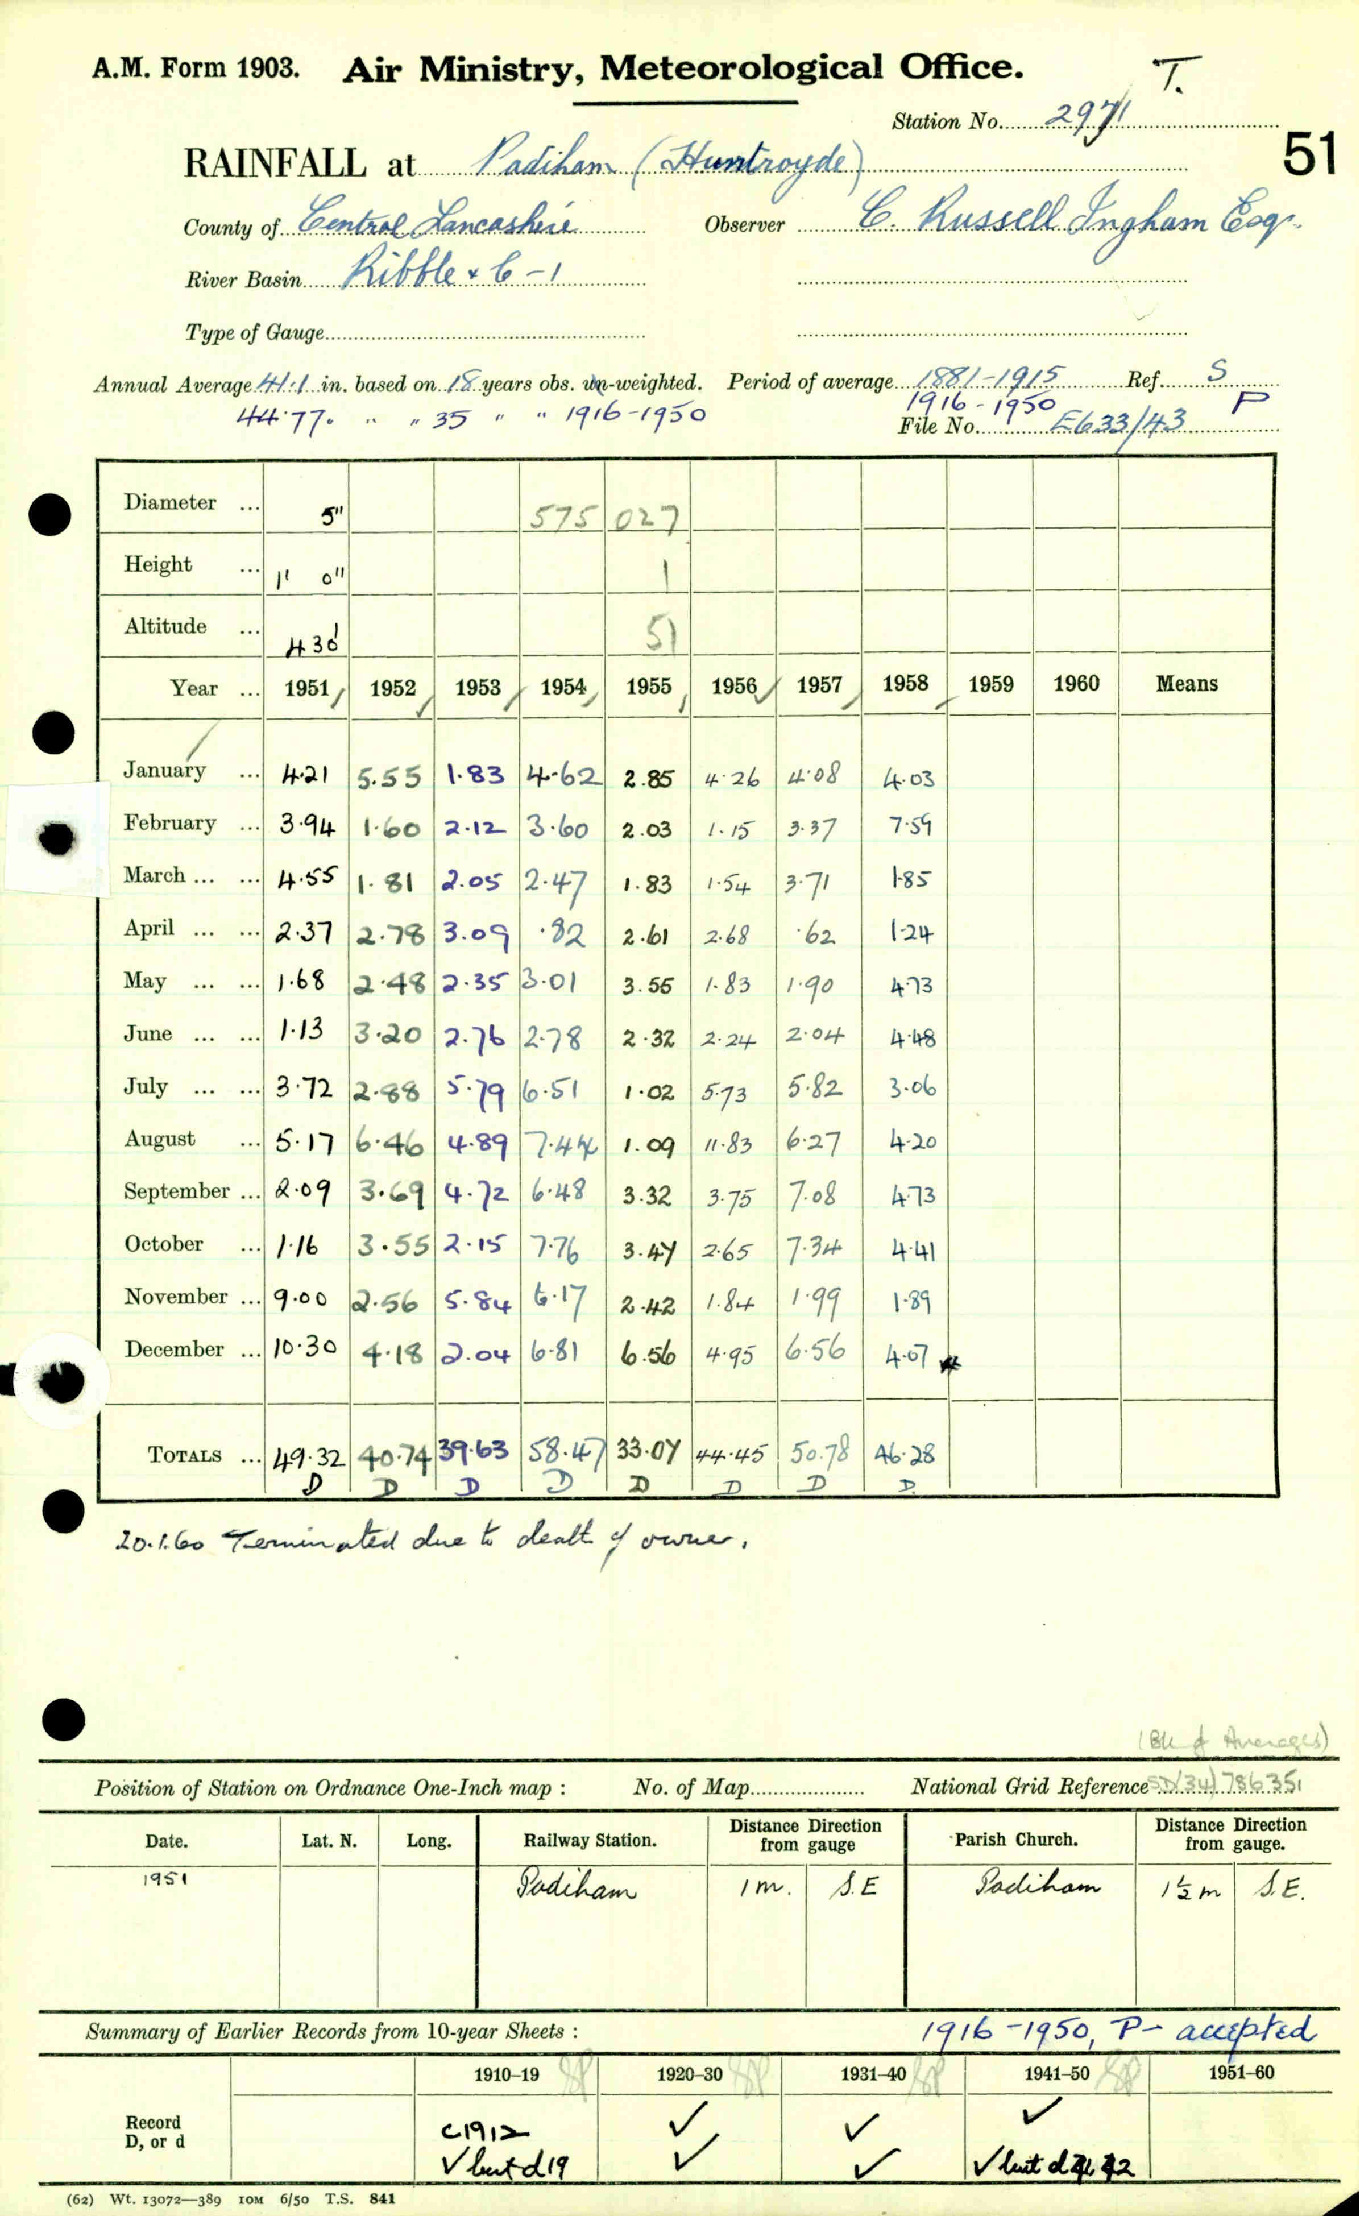 A.M. Form 1903. Air Ministry, Meteorological Office. T.
Station No. 2971
51
RAINFALL at Padiham (Huntroyde)
County of Central Lancashire Observer C. Russell Ingham Esq.
River Basin Ribble & C-1
Type of Gauge
Annual Average 41.1 in. based on 18 years obs. un-weighted. Period of average 1881-1915 Ref. S
44.77. " " 35 " " 1916-1950 1916-1950 P
File No. E633/43
Diameter ... 5" 575 027
Height ... 1' 0" 1
Altitude ... 430' 51
Year ... 1951 1952 1953 1954 1955 1956 1957 1958 1959 1960 Means
January ... 4.21 5.55 1.83 4.62 2.85 4.26 4.08 4.03
February ... 3.94 1.60 2.12 3.60 2.03 1.15 3.37 7.59
March ... ... 4.55 1.81 2.05 2.47 1.83 1.54 3.71 1.85
April ... ... 2.37 2.78 3.09 .82 2.61 2.68 .62 1.24
May ... ... 1.68 2.48 2.35 3.01 3.55 1.83 1.90 4.73
June ... ... 1.13 3.20 2.76 2.78 2.32 2.24 2.04 4.48
July ... ... 3.72 2.88 5.79 6.51 1.02 5.73 5.82 3.06
August ... 5.17 6.46 4.89 7.44 1.09 11.83 6.27 4.20
September ... 2.09 3.69 4.72 6.48 3.32 3.75 7.08 4.73
October ... 1.16 3.55 2.15 7.76 3.47 2.65 7.34 4.41
November ... 9.00 2.56 5.84 6.17 2.42 1.84 1.99 1.89
December ... 10.30 4.18 2.04 6.81 6.56 4.95 6.56 4.07
TOTALS ... 49.32 40.74 39.63 58.47 33.07 44.45 50.78 46.28
D D D D D D D D
20.1.60 Terminated due to death of owner.
(Bk of Averages)
Position of Station on Ordnance One-Inch map : No. of Map National Grid Reference SD(34)786351
Date. Lat. N. Long. Railway Station. Distance from gauge Direction Parish Church. Distance from gauge. Direction
1951 Padiham 1 m. S.E Padiham 1½ m S.E.
Summary of Earlier Records from 10-year Sheets : 1916-1950, P- accepted
1910-19 1920-30 1931-40 1941-50 1951-60
Record D, or d c1912 ✓ ✓ ✓
✓ but d19 ✓ ✓ ✓ but d 42
(62) Wt. 13072—389 10M 6/50 T.S. 841